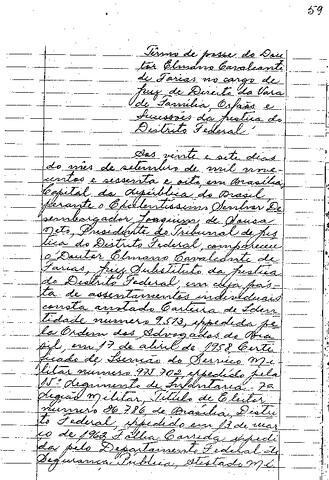 59
Termo de posse do Dou-
tor Elmano Cavalcanti
de Farias no cargo de
Juiz de Direito da Vara
de Família, Orfãos e
Sucessões da Justiça do
Distrito Federal
Aos vinte e sete dias
do mês de setembro de mil nove-
centos e sessenta e oito, em Brasília,
Capital da República do Brasil,
perante o Excelentíssimo Senhor De-
sembargador Joaquim de Sousa
Neto, Presidente do Tribunal de Jus-
tiça do Distrito Federal, compareceu
o Doutor Elmano Cavalcante de
Farias, Juiz Substituto da Justiça
do Distrito Federal, em cuja pas-
ta de assentamentos individuais
consta anotado Carteira de Iden-
tidade numero 7.513, expedida pe-
la Ordem dos Advogados do Bra-
sil, em 17 de abril de 1958 Certi-
ficado de Isenção do Serviço Mi-
litar numero 973.702, expedido pelo
15º Regimento de Infantaria. 7a
Região Militar, Título de Eleitor
numero 26.786 de Brasília, Distri-
to Federal, expedido em 13 de mar-
ço de 1962, Folha Corrida expedi-
da pelo Departamento Federal de
Segurança Publica, Atestado Mé-